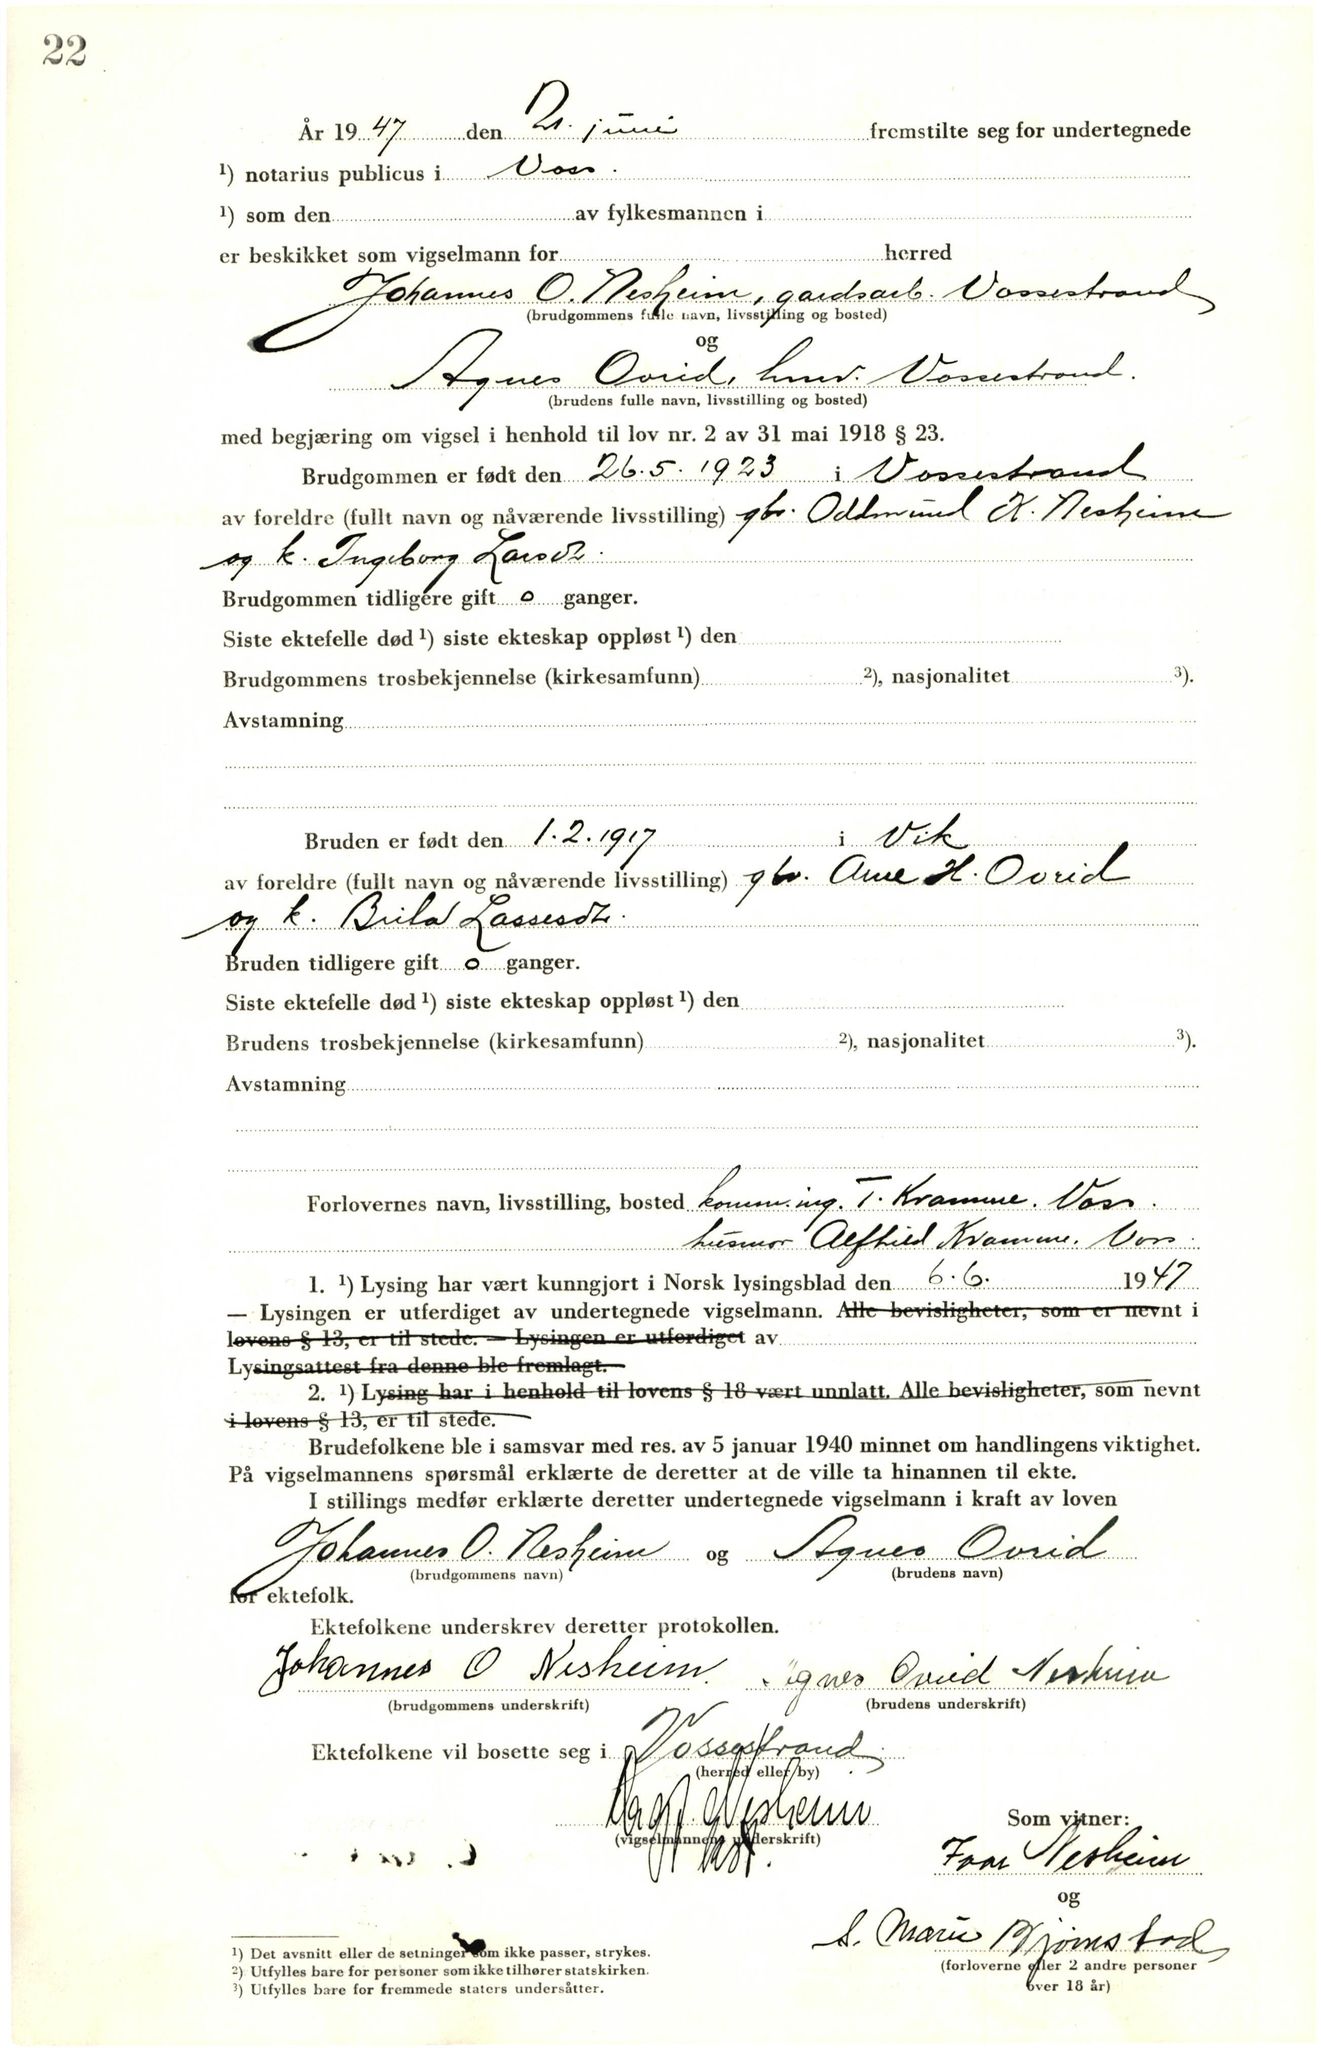 22
År 1947 den 21. juni fremstilte seg for undertegnede
¹) notarius publicus i Voss.
¹) som den av fylkesmannen i
er beskikket som vigselmann for herred
Johannes O. Nesheim, gardsarb. Vossestrand
(brudgommens fulle navn, livsstilling og bosted)
og
Agnes Ovrid, husv. Vossestrand.
(brudens fulle navn, livsstilling og bosted)
med begjæring om vigsel i henhold til lov nr. 2 av 31 mai 1918 § 23.
Brudgommen er født den 26.5.1923 i Vossestrand
av foreldre (fullt navn og nåværende livsstilling) gbr. Oddmund K. Nesheim
og k. Ingeborg Larsdt.
Brudgommen tidligere gift 0 ganger.
Siste ektefelle død ¹) siste ekteskap oppløst ¹) den
Brudgommens trosbekjennelse (kirkesamfunn) ²), nasjonalitet ³).
Avstamning
Bruden er født den 1.2.1917 i Vik
av foreldre (fullt navn og nåværende livsstilling) gbr. Arne H. Ovrid
og k. Brita Lassesdt.
Bruden tidligere gift 0 ganger.
Siste ektefelle død ¹) siste ekteskap oppløst ¹) den
Brudens trosbekjennelse (kirkesamfunn) ²), nasjonalitet ³).
Avstamning
Forlovernes navn, livsstilling, bosted komm.ing. T. Kramme. Voss.
husmor Alfhild Kramme. Voss.
1. ¹) Lysing har vært kunngjort i Norsk lysingsblad den 6.6. 1947
— Lysingen er utferdiget av undertegnede vigselmann. Alle bevisligheter, som er nevnt i
lovens § 13, er til stede. — Lysingen er utferdiget av
Lysingsattest fra denne ble fremlagt. —
2. ¹) Lysing har i henhold til lovens § 18 vært unnlatt. Alle bevisligheter, som nevnt
i lovens § 13, er til stede.
Brudefolkene ble i samsvar med res. av 5 januar 1940 minnet om handlingens viktighet.
På vigselmannens spørsmål erklærte de deretter at de ville ta hinannen til ekte.
I stillings medfør erklærte deretter undertegnede vigselmann i kraft av loven
Johannes O. Nesheim og Agnes Ovrid
(brudgommens navn) (brudens navn)
for ektefolk.
Ektefolkene underskrev deretter protokollen.
Johannes O Nesheim. Agnes Ovrid Nesheim
(brudgommens underskrift) (brudens underskrift)
Ektefolkene vil bosette seg i Vossestrand.
(herred eller by)
Nesheim
(vigselmannens underskrift)
Som vitner:
Ivar Nesheim
og
S. Marie Bjørnstad
(forloverne eller 2 andre personer
over 18 år)
¹) Det avsnitt eller de setninger som ikke passer, strykes.
²) Utfylles bare for personer som ikke tilhører statskirken.
³) Utfylles bare for fremmede staters undersåtter.